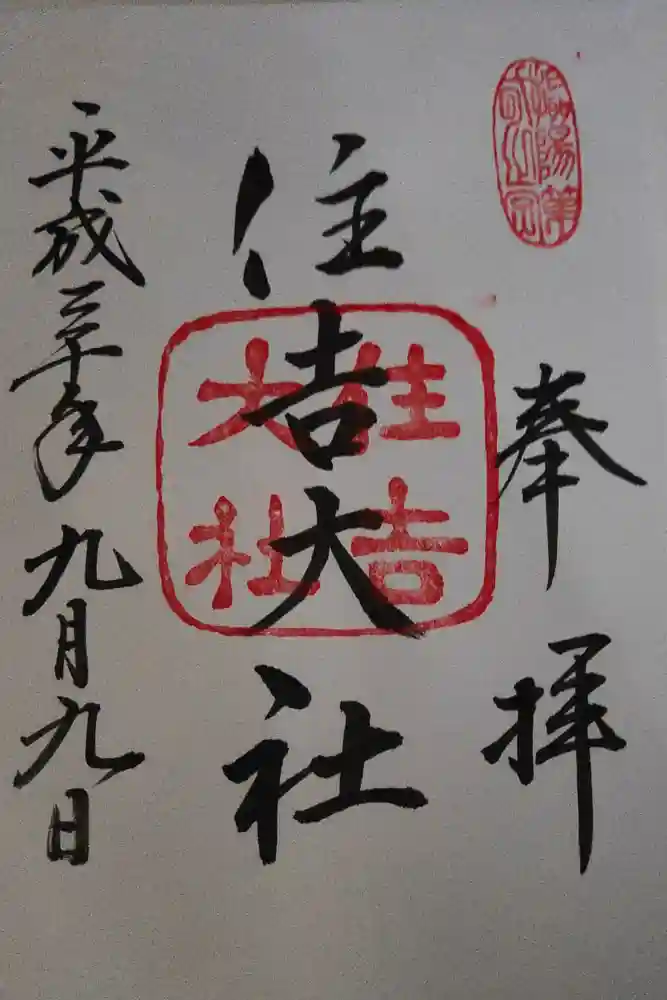 奉拝
住吉大社
住吉大社
平成三十年九月九日